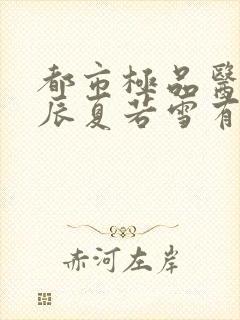 都市極品醫
辰夏若雪有
赤河左岸